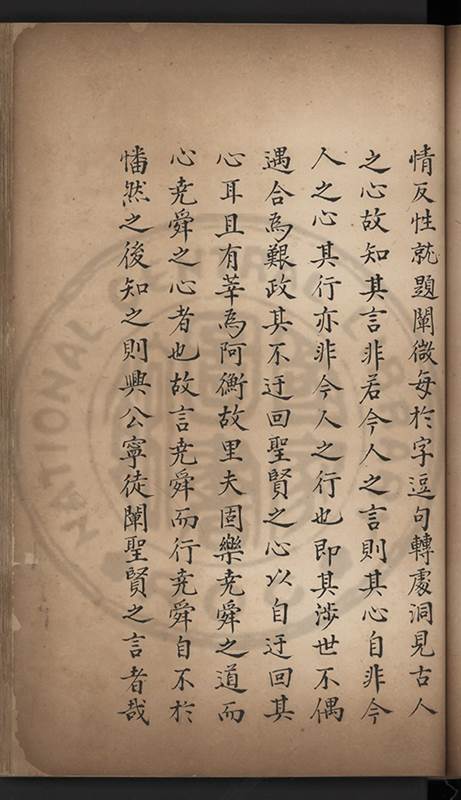 情反性就題闡微每於字逗句轉處洞見古人
之心故知其言非若今人之言則其心自非今
人之心其行亦非今人之行也即其涉世不偶
遇合為艱政其不迂回聖賢之心以自迂回其
心耳且有莘為阿衡故里夫固樂堯舜之道而
心堯舜之心者也故言堯舜而行堯舜自不於
幡然之後知之則興公寧徒闡聖賢之言者哉